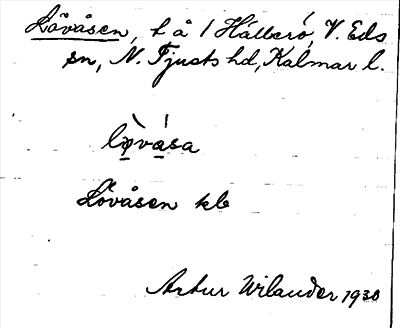 Lövåsen, t å 1 Hälleró, V. Eds
sn, N. Tjusts hd, Kalmar l.
lø̀vása
Lövåsen kb
Artur Wilander 1930